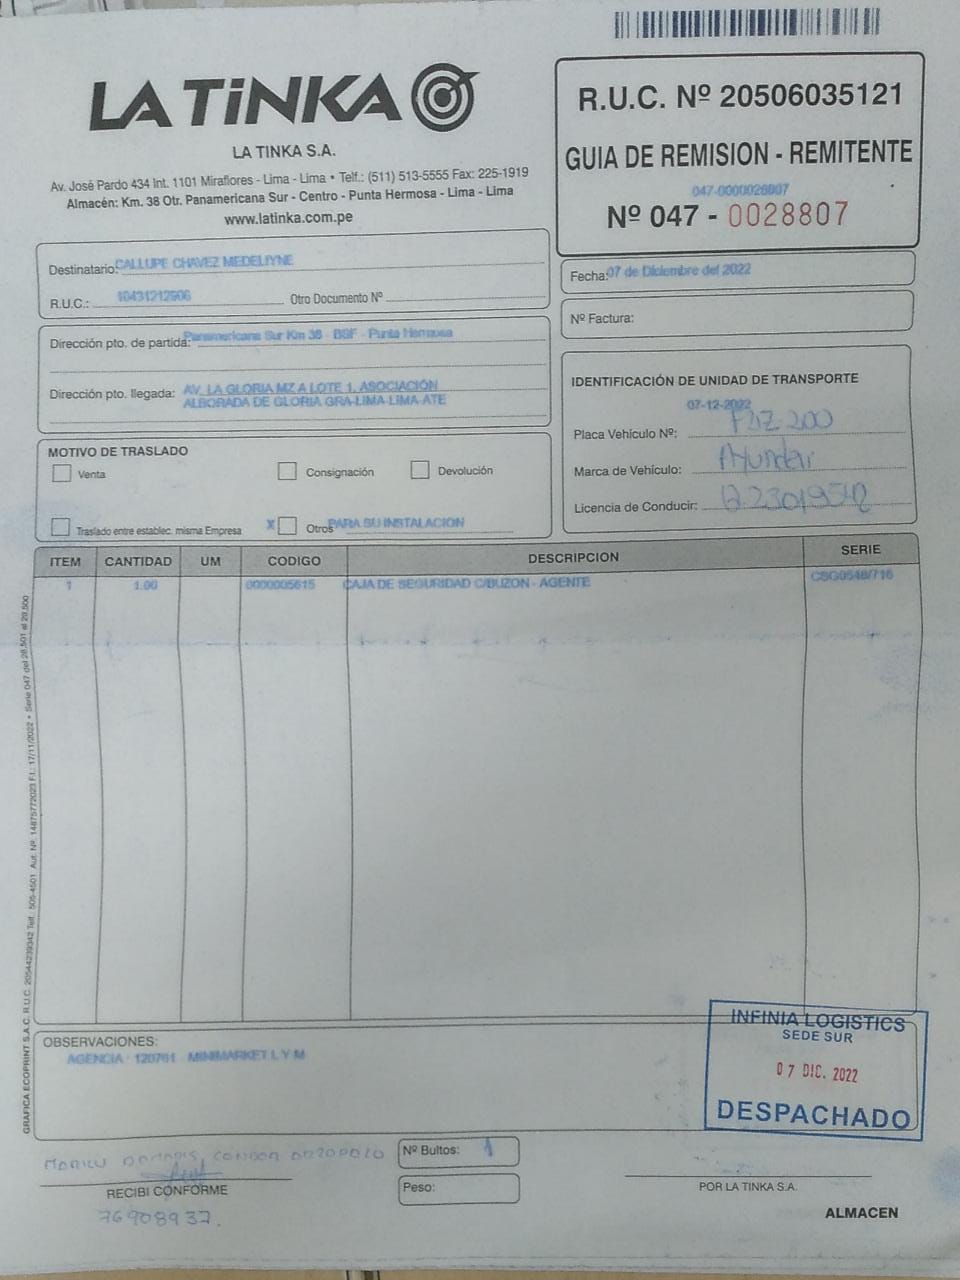 LA TiNKA
LA TINKA S.A.
Av. José Pardo 434 Int. 1101 Miraflores - Lima - Lima • Telf.: (511) 513-5555 Fax: 225-1919
Almacén: Km. 38 Otr. Panamericana Sur - Centro - Punta Hermosa - Lima - Lima
www.latinka.com.pe
R.U.C. Nº 20506035121
GUIA DE REMISION - REMITENTE
047-0000028807
Nº 047 - 0028807
Destinatario: CALLUPE CHAVEZ MEDELIYNE
R.U.C.: 10431212906 Otro Documento Nº
Fecha: 07 de Diciembre del 2022
Nº Factura:
Dirección pto. de partida: Panamericana Sur Km 38 - BGF - Punta Hermosa
Dirección pto. llegada: AV. LA GLORIA MZ A LOTE 1. ASOCIACIÓN
ALBORADA DE GLORIA GRA-LIMA-LIMA-ATE
IDENTIFICACIÓN DE UNIDAD DE TRANSPORTE
07-12-2022
Placa Vehículo Nº:
Marca de Vehículo: Hyundai
Licencia de Conducir:
MOTIVO DE TRASLADO
Venta
Consignación
Devolución
Traslado entre establec. misma Empresa
X Otros PARA SU INSTALACION
ITEM CANTIDAD UM CODIGO DESCRIPCION SERIE
1 1.00 0000005615 CAJA DE SEGURIDAD C/BUZON - AGENTE CSG0548/716
GRAFICA ECOPRINT S.A.C. R.U.C. 20544239042 Telf.: 505-4501 Aut. Nº. 14875772023 F.I.: 17/11/2022 • Serie 047 del 28,501 al 29,500
OBSERVACIONES:
AGENCIA - 120761 MINIMARKET L Y M
INFINIA LOGISTICS
SEDE SUR
07 DIC. 2022
DESPACHADO
CONDOR
RECIBI CONFORME
76908937.
Nº Bultos: 1
Peso:
POR LA TINKA S.A.
ALMACEN